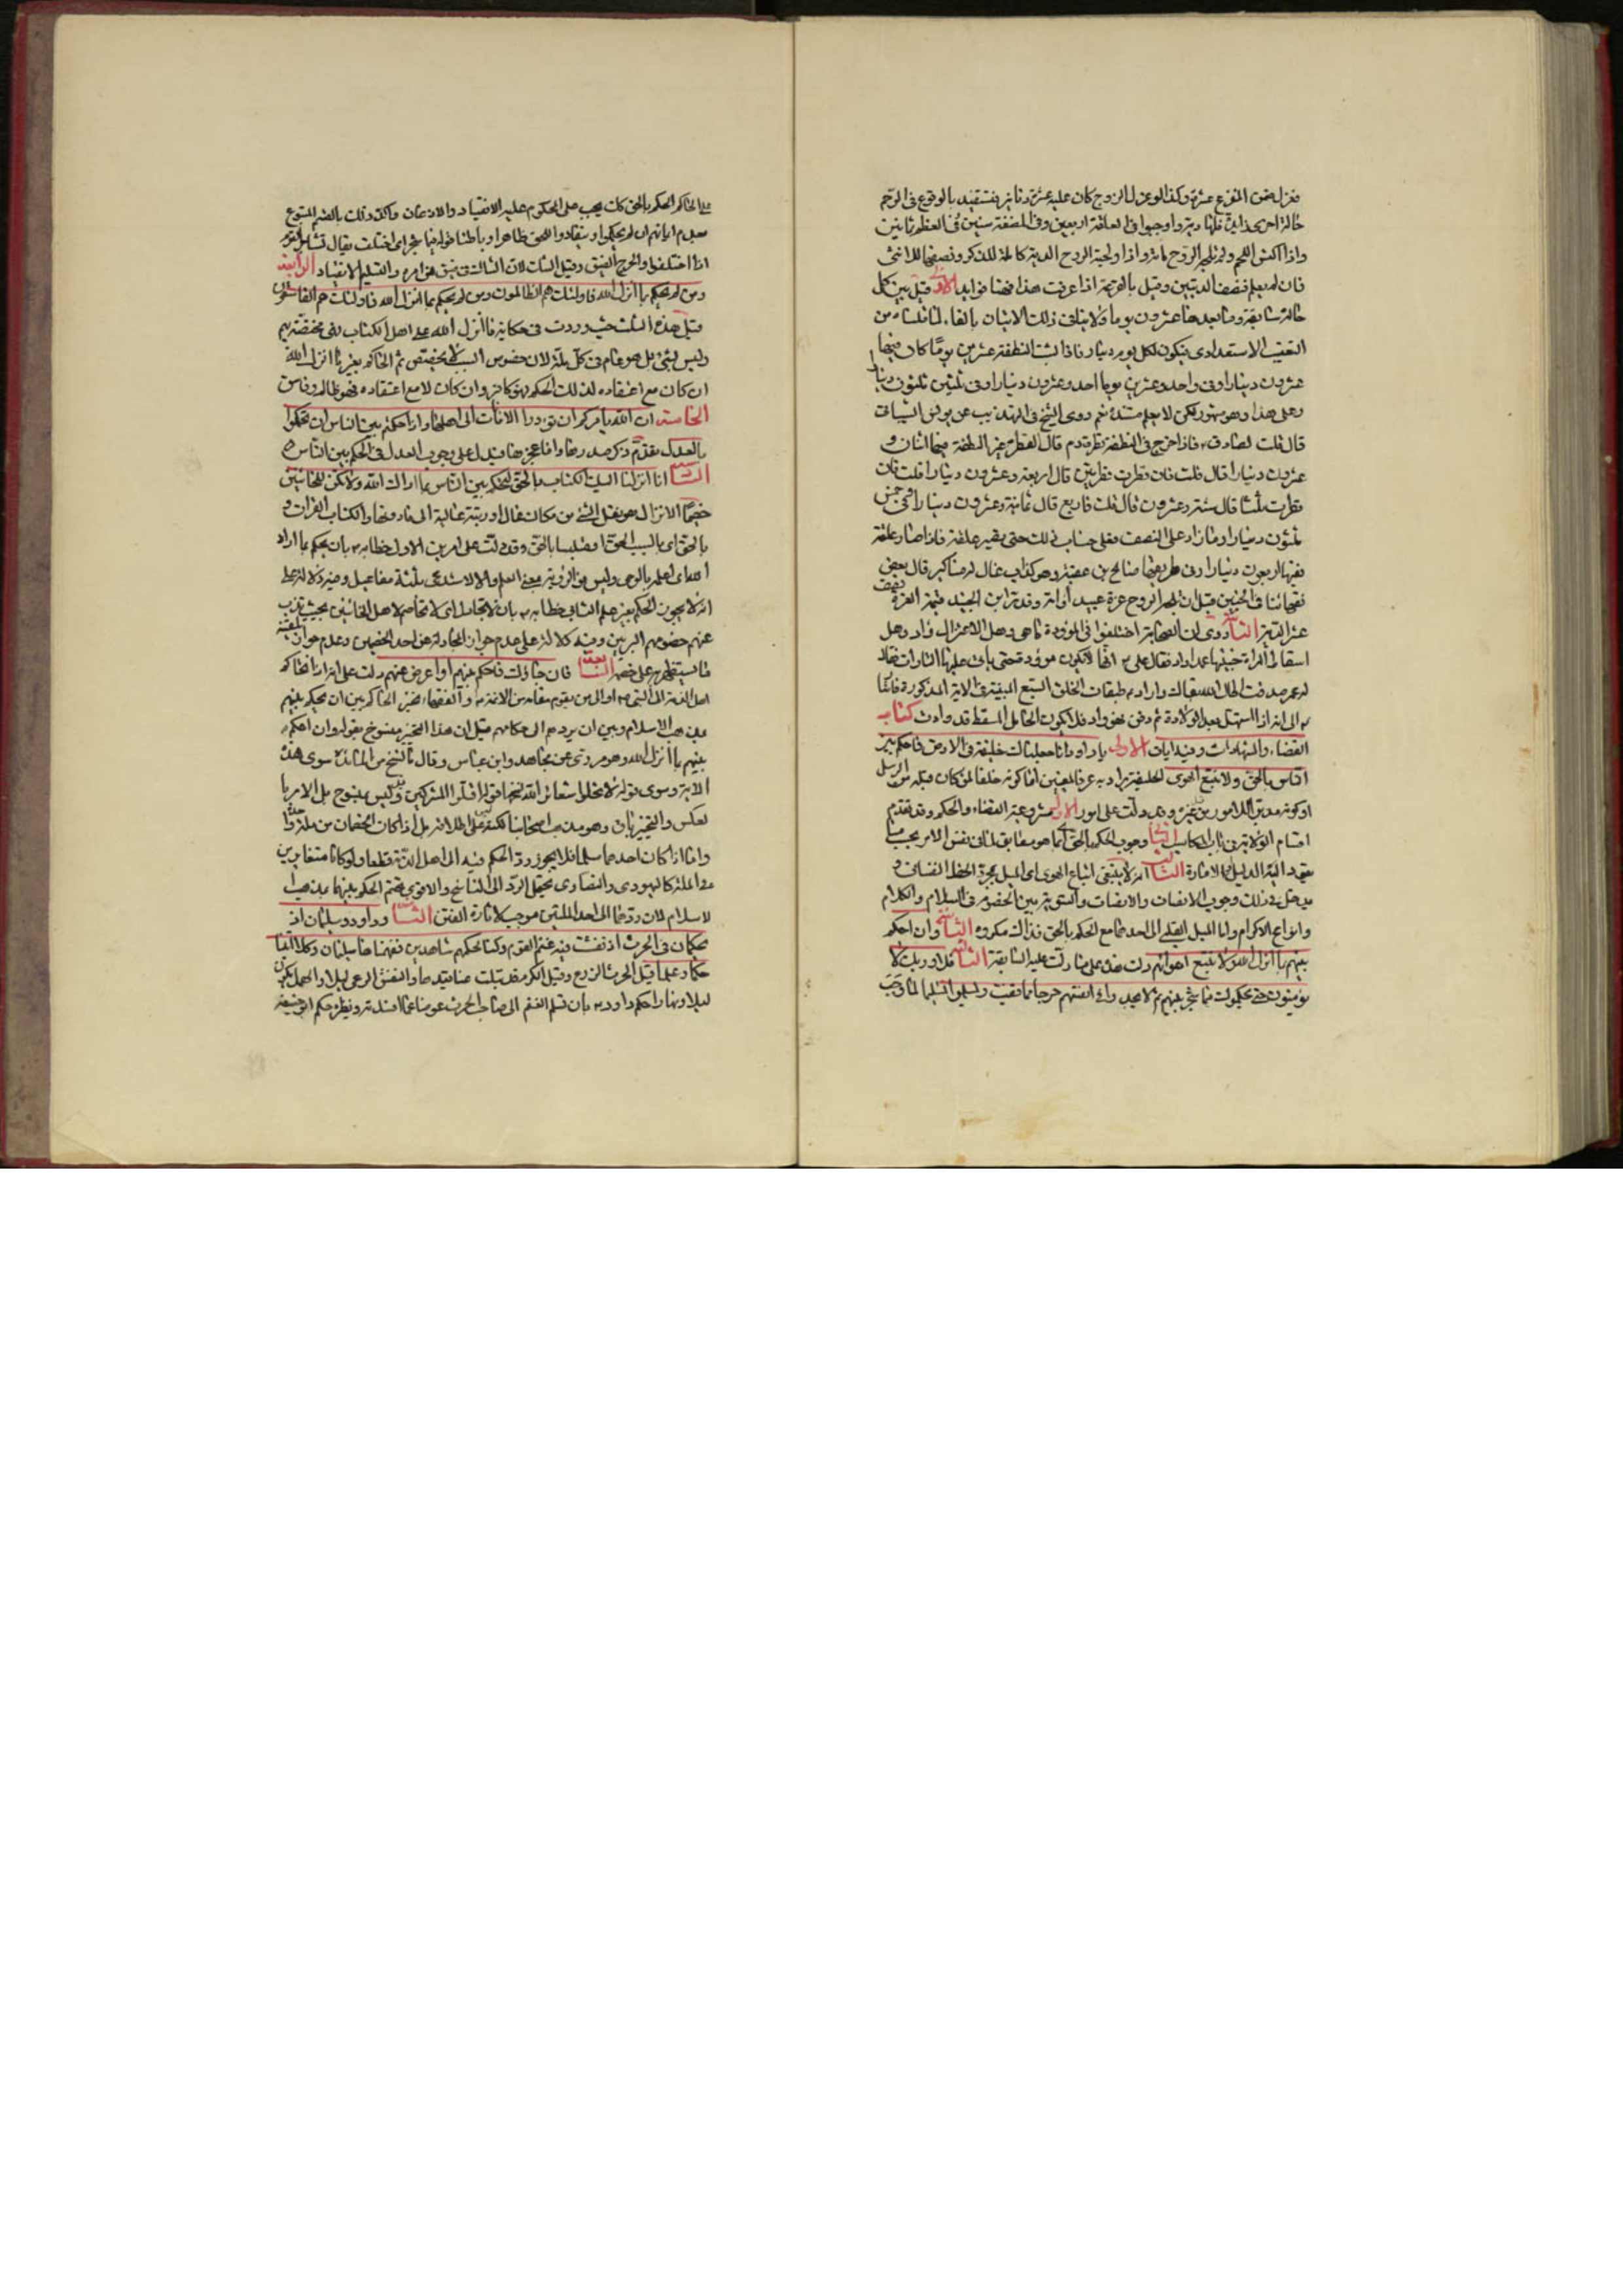 فعزل ضمن المفزع عشرة وكذا لو عزل الزوج كان عليه عشرة دنانير فتستفيد بالوقوع في الرحم
حالة اخرى فلها دية واوجبوا في العلقة اربعين وفي المضغة ستين وفي العظم ثمانين
واذا اكتسى اللحم ولم تلجه الروح مائة واذا ولجته الروح الدية كاملة للذكر ونصفها للانثى
فان لم يعلم فنصف الديتين وقيل بالقرعة اذا عرفت هذا فهنا فوايد الاولى قيل بين كل
حالة سابقة وما بعدها عشرون يوما ولا ينافي ذلك الاتيان بالفاء لما قلناه من
التعقيب الاستعدادي فيكون لكل يوم دينار فاذا لبثت النطفة عشرين يوما كان فيها
عشرون دينارا وفي واحد وعشرين يوما احد وعشرون دينارا وفي ثلثين ثلثون دينارا
وعلى هذا وهو مشهور لكن لا يعلم مستنده نعم روى الشيخ في التهذيب عن يونس الشيباني
قال قلت للصادق ع فاذا خرج في النطفة قطرة دم قال القطرة عشر النطفة فيها اثنان و
عشرون دينارا قال قلت فان قطرت قطرتين قال اربعة وعشرون دينارا قلت فان
قطرت ثلثا قال ستة وعشرون قال قلت فاربع قال ثمانية وعشرون دينارا وفي خمس
ثلثون دينارا وما زاد على النصف فعلى حساب ذلك حتى يصير علقة فاذا صار علقة
ففيها اربعون دينارا وفي طريقها صالح بن عقبة وهو كذاب غال له مناكير قال بعض
فقهائنا في الجنين قبل ان يلجه الروح غرة عبد او امة وقدر ابن الجنيد قيمة الغرة نصف
عشر الدية الثانية روى ان الصحابة اختلفوا في الموؤدة ما هي وهل الاعتزال واد وهل
اسقاط المراة جنينها عمدا واد فقال علي ع انها لا تكون موؤدة حتى ياتي عليها التارات فقال
له عمر صدقت اطال الله بقاك واراد ع طبقات الخلق السبع المبينة في الاية المذكورة فاشار
ع الى انه اذا استهل بعد الولادة ثم دفن فهو واد فلا يكون الحامل المسقط قد وادت كتاب
القضاء والشهادات وفيه ايات الاولى يا داود انا جعلناك خليفة في الارض فاحكم بين
الناس بالحق ولا تتبع الهوى الخليفة يراد به عرفا لمعنيين اما كونه خلفا لمن كان قبله من الرسل
او كونه مدبرا للامور من غيره وقد دلت على امور الاول مشروعية القضاء والحكم وقد تقدم
اقسام الولاية في باب المكاسب الثاني وجوب الحكم بالحق اي بما هو مطابق لما في نفس الامر بحسب ما
يقود اليه الدليل او الامارة الثالث انه لا ينبغي اتباع الهوى اي الميل بمجرد الحظ النفساني و
يدخل في ذلك وجوب الانصاف والانصات والتسوية بين الخصوم في السلام والكلام
وانواع الاكرام واما الميل القلبي الى احدهما مع الحكم بالحق فذلك مكروه الثانية وان احكم
بينهم بما انزل الله ولا تتبع اهوائهم دلت هذه على ما دلت عليه السابقة الثالثة فلا وربك لا
يؤمنون حتى يحكموك فيما شجر بينهم ثم لا يجدوا في انفسهم حرجا مما قضيت ويسلموا تسليما لما وجب
على الحاكم الحكم بالحق كان يجب على المحكوم عليه الانقياد والاذعان واكد ذلك بالقسم المتبوع
بعدم ايمانهم ان لم يحكموا وينقادوا للحق ظاهرا وباطنا قوله فيما شجر اي اختلف يقال تشاجر القوم
اذا اختلفوا والحرج الضيق وقيل الشك لان الشاك في ضيق من امره والتسليم الانقياد الرابعة
ومن لم يحكم بما انزل الله فاولئك هم الظالمون ومن لم يحكم بما انزل الله فاولئك هم الفاسقون
قيل هذه الثلث حيث وردت في حكاية ما انزل الله على اهل الكتاب فهي مختصة بهم
وليس بشئ بل هو عام في كل ملة لان خصوص السبب لا يخصص ثم الحاكم بغير ما انزل الله
ان كان مع اعتقاده لذلك الحكم فهو كافر وان كان لا مع اعتقاده فهو ظالم وفاسق
الخامسة ان الله يامركم ان تؤدوا الامانات الى اهلها واذا حكمتم بين الناس ان تحكموا
بالعدل تقدم ذكر صدرها واما عجزها فيدل على وجوب العدل في الحكم بين الناس
السادسة انا انزلنا اليك الكتاب بالحق لتحكم بين الناس بما اراك الله ولا تكن للخائنين
خصيما الانزال هو نقل الشئ من مكان عال او رتبة عالية الى ما دونها والكتاب القرآن و
بالحق اي بالسبب الحق او متلبسا بالحق وقد دلت على امرين الاول خطابه ع بان يحكم بما اراه
الله اي اعلمه بالوحي وليس من الرؤية بمعنى العلم والا لاستدعى ثلثة مفاعيل وفيه دلالة على
انه لا يجوز الحكم بغير علم الثاني خطابه ع بان لا يجادل اي لا تخاصم لاهل الخائنين بحيث تذب
عنهم خصومهم البريين وفيه دلالة على عدم جواز المجادلة عن احد الخصمين وعدم جواز تلقينه
ما يستظهر به على خصمه السابعة فان جاؤك فاحكم بينهم او اعرض عنهم دلت على انه اذا تحاكم
اهل الذمة الى النبي ص او الى من يقوم مقامه من الائمة ع والفقهاء تخير الحاكم بين ان يحكم بينهم
بمذهب الاسلام وبين ان يردهم الى حكامهم قيل ان هذا التخيير منسوخ بقوله وان احكم
بينهم بما انزل الله وهو مروى عن مجاهد وابن عباس وقال ما نسخ من المائدة سوى هذه
الاية وسوى قوله لا تحلوا شعائر الله نسخها قوله اقتلوا المشركين وقيل ليس بمنسوخ بل الامر با
لعكس والتخيير باق وهو مذهب اصحابنا لكنه ليس على اطلاقه بل اذا كان الخصمان من ملة واحدة
واما اذا كان احدهما مسلما فلا يجوز رد الحكم فيه الى اهل الذمة قطعا ولو كانا متغايرين
في الملة كاليهودي والنصارى يحتمل الرد الى الناسخ والاقوى تحتم الحكم بينهما بمذهب ا
لاسلام لان ردهما الى احد الملتين موجب لاثارة الفتن الثامنة وداود وسليمان اذ
يحكمان في الحرث اذ نفشت فيه غنم القوم وكنا لحكمهم شاهدين ففهمناها سليمان وكلا اتينا
حكما وعلما قيل الحرث الزرع وقيل الكرم فدلت عناقيده والنفش الرعي ليلا والهمل يكون
ليلا ونهارا حكم داود ع بان تسلم الغنم الى صاحب الحرث عوضا عما افسدته ونظيره حكم ابو حنيفة